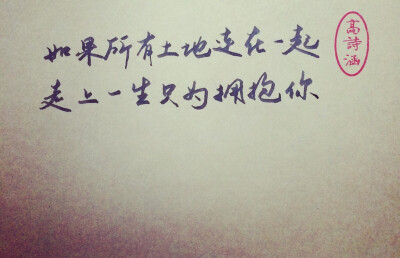 如果所有土地连在一起
走上一生只为拥抱你
高詩涵